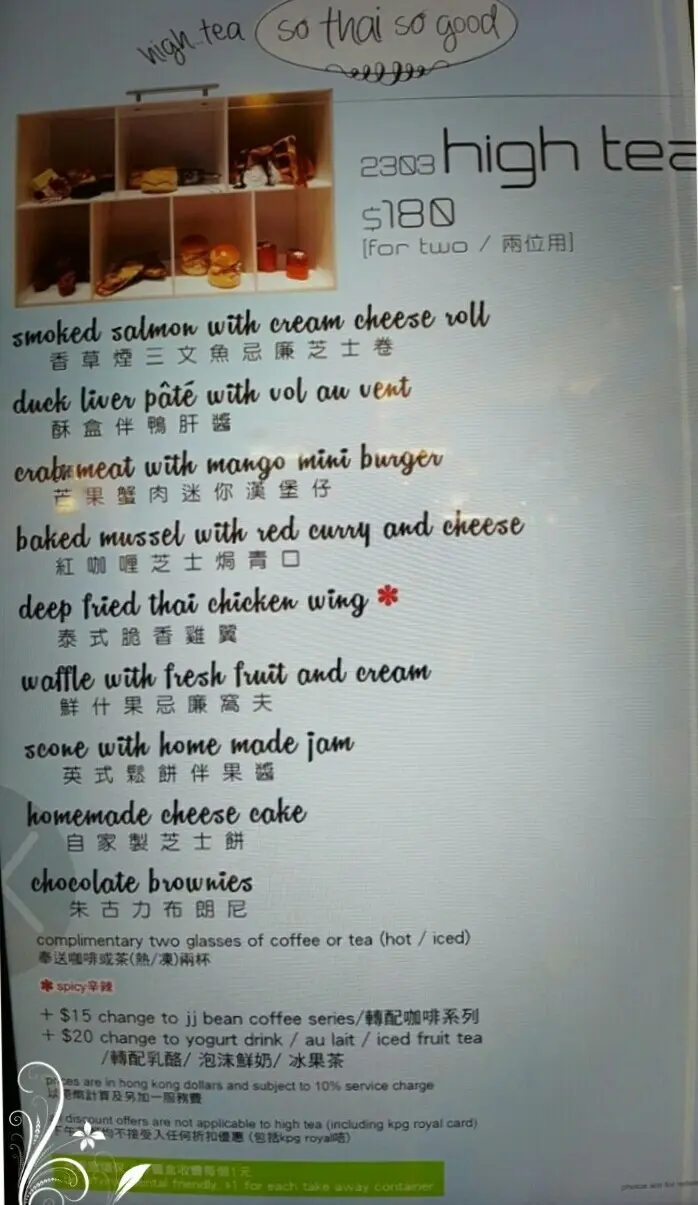 high tea so thai so good
2303 high tea
$180
[for two / 兩位用]
smoked salmon with cream cheese roll
香草煙三文魚忌廉芝士卷
duck liver pâté with vol au vent
酥盒伴鴨肝醬
crabmeat with mango mini burger
芒果蟹肉迷你漢堡仔
baked mussel with red curry and cheese
紅咖喱芝士焗青口
deep fried thai chicken wing *
泰式脆香雞翼
waffle with fresh fruit and cream
鮮什果忌廉窩夫
scone with home made jam
英式鬆餅伴果醬
homemade cheese cake
自家製芝士餅
chocolate brownies
朱古力布朗尼
complimentary two glasses of coffee or tea (hot / iced)
奉送咖啡或茶(熱/凍)兩杯
* spicy辛辣
+ $15 change to jj bean coffee series/轉配咖啡系列
+ $20 change to yogurt drink / au lait / iced fruit tea
/轉配乳酪/ 泡沫鮮奶/ 冰果茶
prices are in hong kong dollars and subject to 10% service charge
以港幣計算及另加一服務費
discount offers are not applicable to high tea (including kpg royal card)
不接受入任何折扣優惠 (包括kpg royal咭)
盒收費每個1元
friendly, $1 for each take away container
photos are for